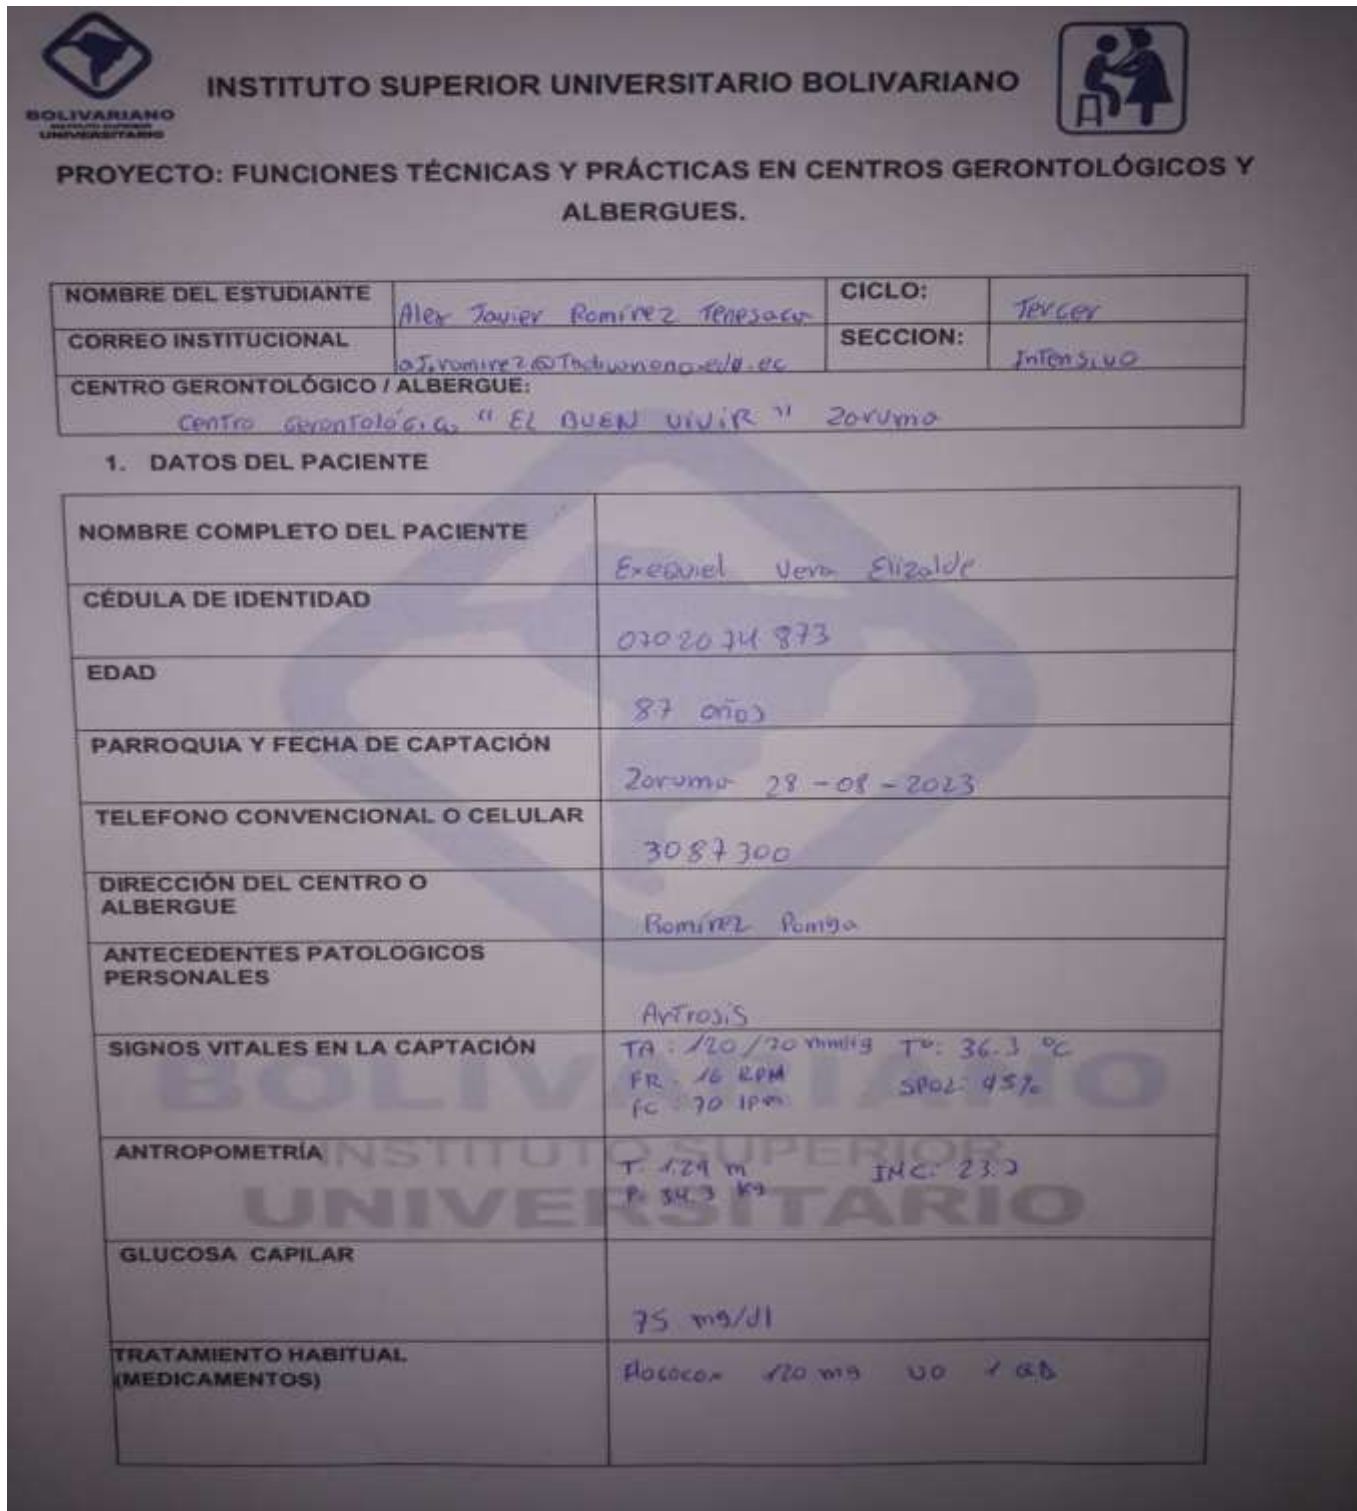 BOLIVARIANO
INSTITUTO SUPERIOR
UNIVERSITARIO
INSTITUTO SUPERIOR UNIVERSITARIO BOLIVARIANO
PROYECTO: FUNCIONES TÉCNICAS Y PRÁCTICAS EN CENTROS GERONTOLÓGICOS Y
ALBERGUES.
NOMBRE DEL ESTUDIANTE Alex Javier Ramírez Tenesaca CICLO: Tercer
CORREO INSTITUCIONAL SECCION: Intensivo
CENTRO GERONTOLÓGICO / ALBERGUE:
Centro Gerontológico "EL BUEN VIVIR" Zaruma
1. DATOS DEL PACIENTE
NOMBRE COMPLETO DEL PACIENTE Exequiel Vera Elizalde
CÉDULA DE IDENTIDAD 0702074873
EDAD 87 años
PARROQUIA Y FECHA DE CAPTACIÓN Zaruma 28-08-2023
TELEFONO CONVENCIONAL O CELULAR 3087300
DIRECCIÓN DEL CENTRO O
ALBERGUE Ramírez
ANTECEDENTES PATOLOGICOS
PERSONALES Artrosis
SIGNOS VITALES EN LA CAPTACIÓN TA: 120/70 mmHg T°: 36.3 °C
FR: 16 RPM SPO2: 95%
FC: 70 lpm
BOLIVARIANO
ANTROPOMETRÍA T: 1.29 m IMC:
P: 34.3 Kg
INSTITUTO SUPERIOR
UNIVERSITARIO
GLUCOSA CAPILAR 75 mg/dl
TRATAMIENTO HABITUAL
(MEDICAMENTOS) 120 mg VO 1 QD